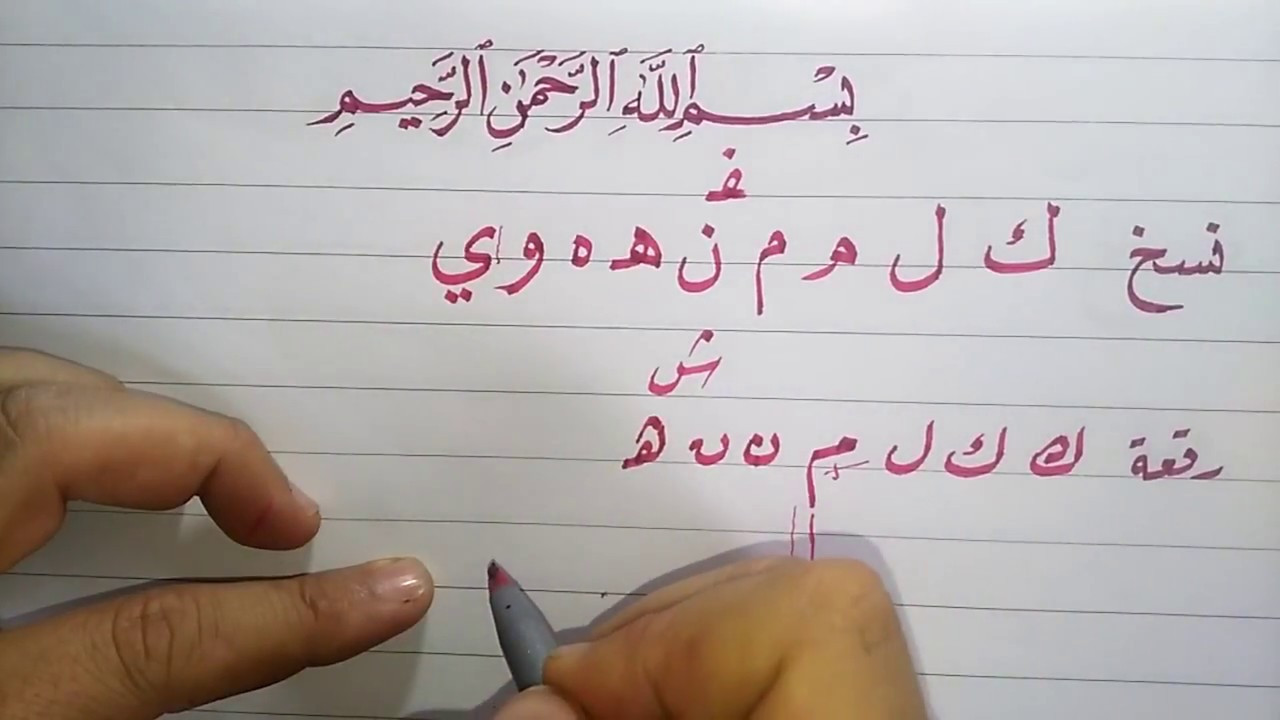 بِسْــمِ ٱللَّهِ ٱلرَّحْمَٰنِ ٱلرَّحِيــمِ
ف
نسخ ك ل م م ن هـ ه و ي
ش
رقعة ك ك ل م ن ن هـ